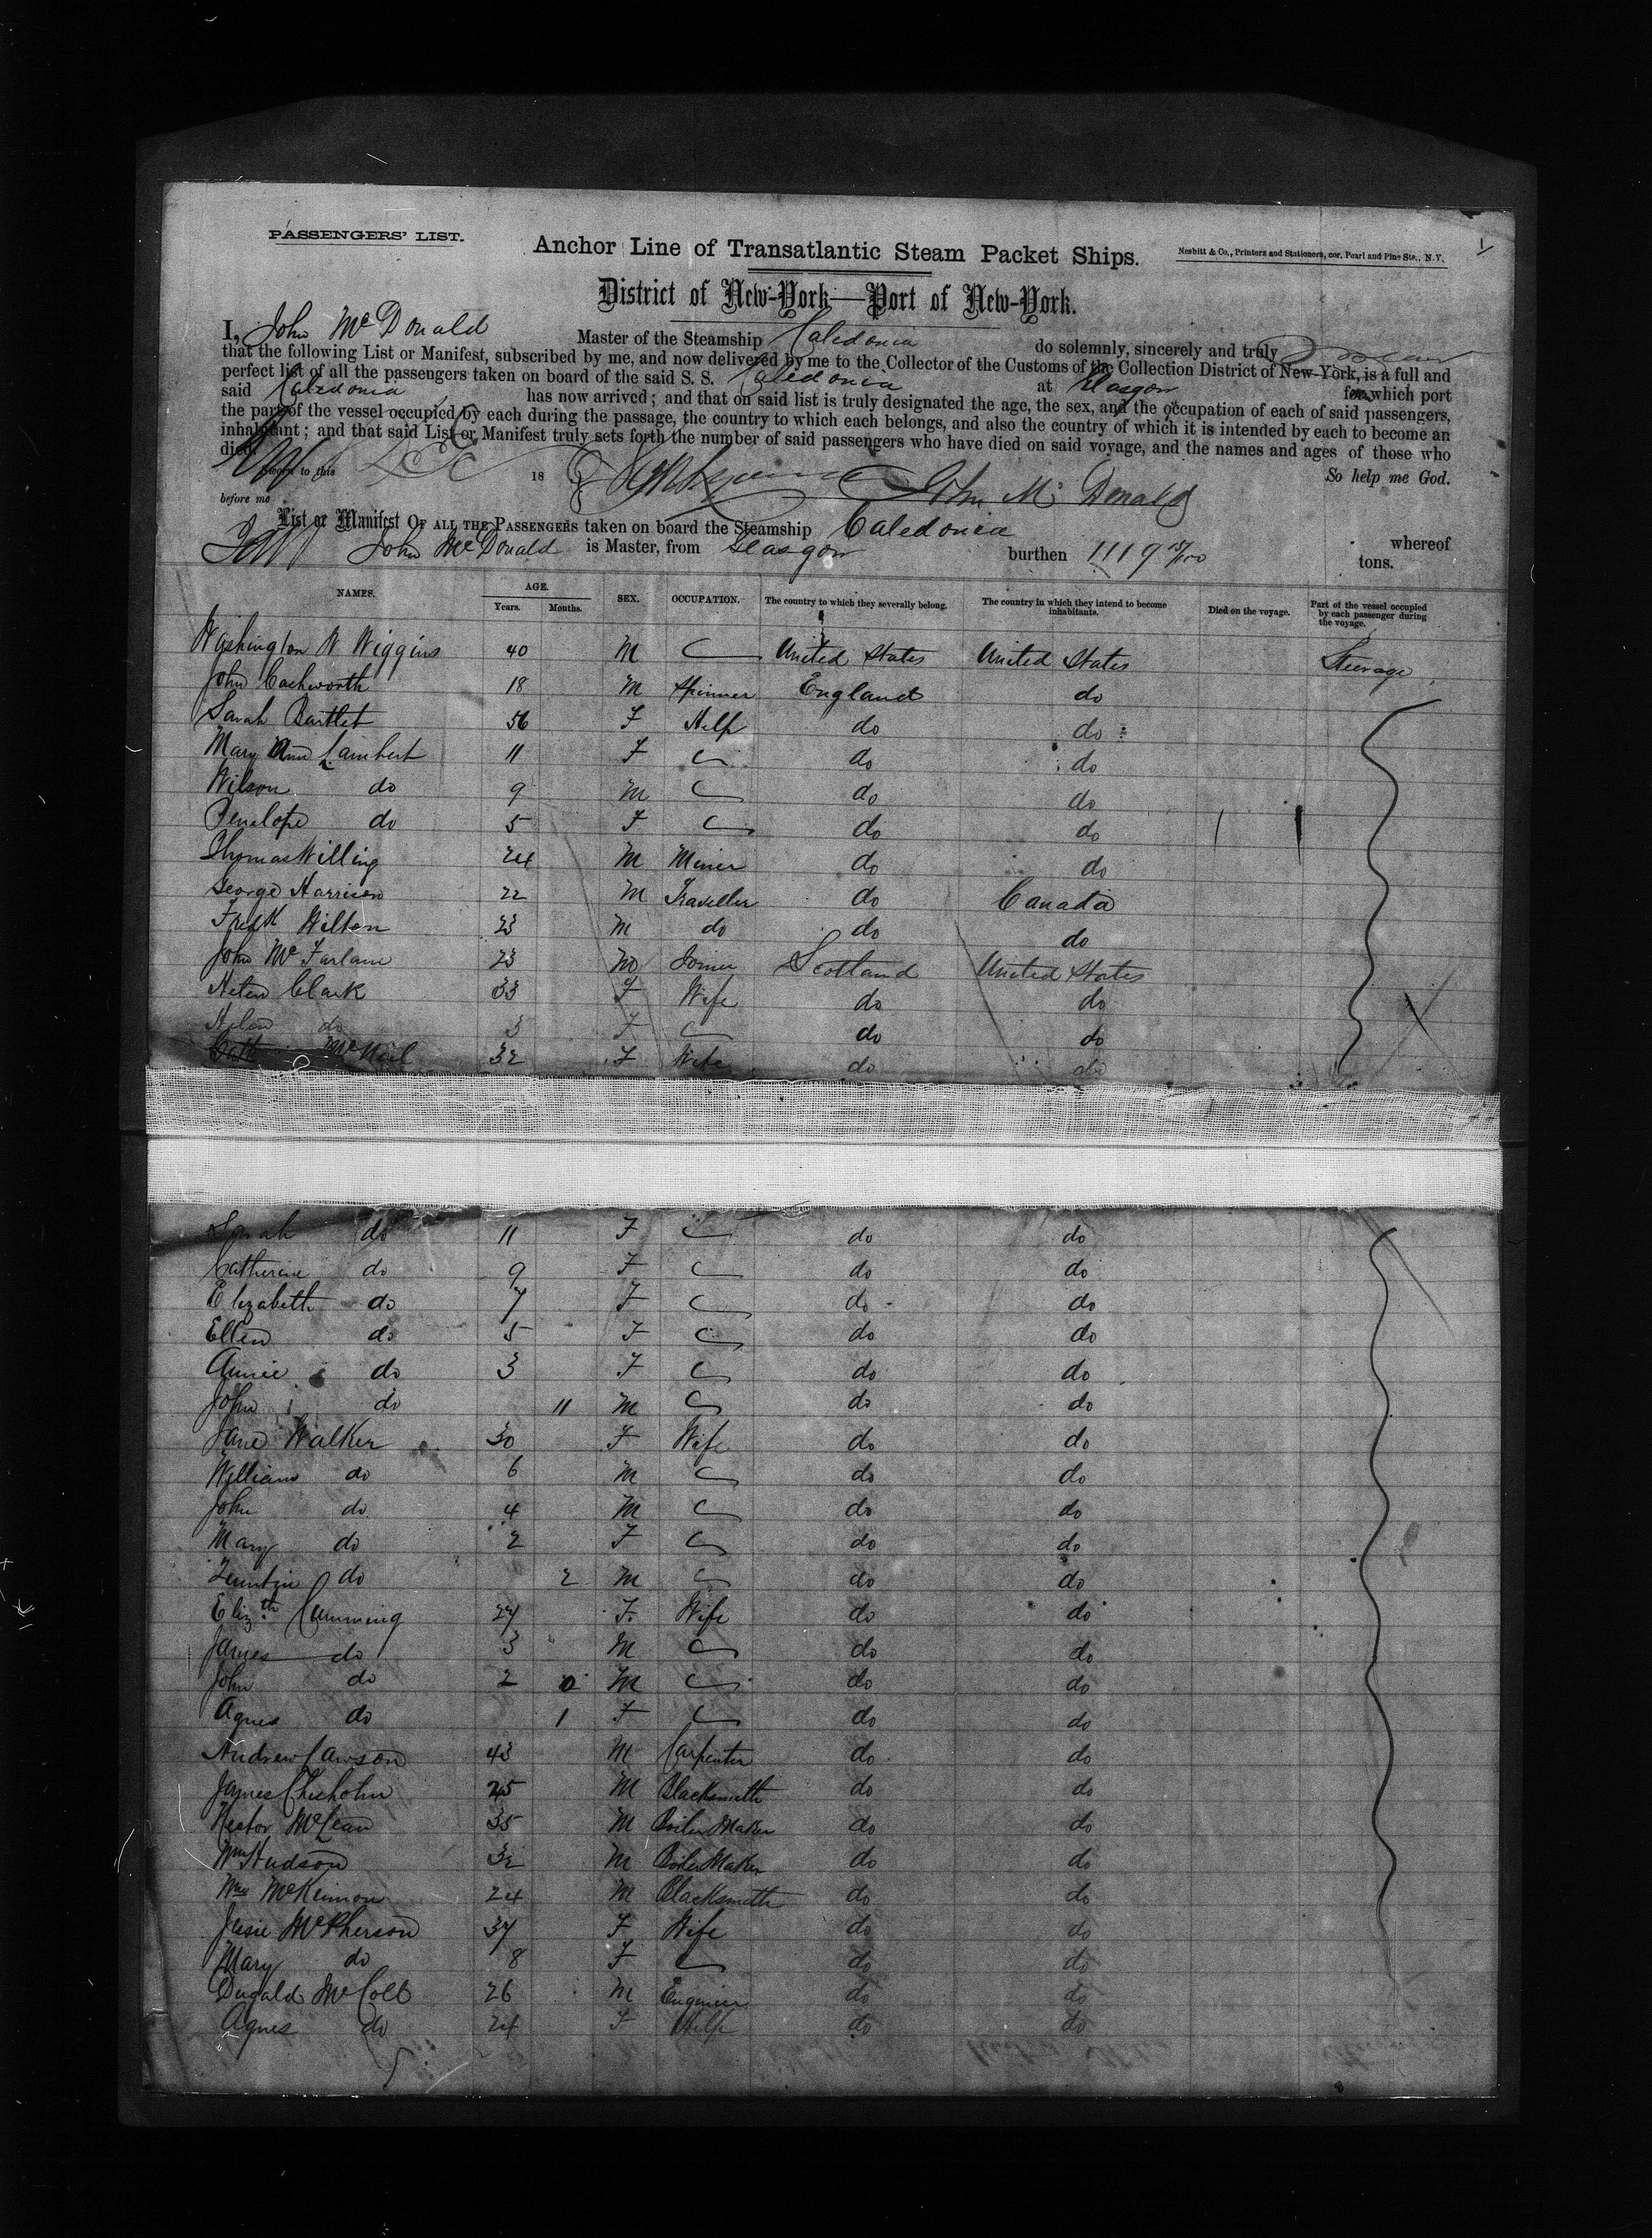 PASSENGERS' LIST.
Anchor Line of Transatlantic Steam Packet Ships.
Nesbitt & Co., Printers and Stationers, cor. Pearl and Pine Sts., N.Y.
1
District of New-York—Port of New-York.
I, John McDonald Master of the Steamship Caledonia do solemnly, sincerely and truly swear
that the following List or Manifest, subscribed by me, and now delivered by me to the Collector of the Customs of the Collection District of New-York, is a full and
perfect list of all the passengers taken on board of the said S. S. Caledonia at Glasgow from which port
said Caledonia has now arrived; and that on said list is truly designated the age, the sex, and the occupation of each of said passengers,
the part of the vessel occupied by each during the passage, the country to which each belongs, and also the country of which it is intended by each to become an
inhabitant; and that said List or Manifest truly sets forth the number of said passengers who have died on said voyage, and the names and ages of those who
died.
So help me God.
Sworn to this 18
John McDonald
before me
List or Manifest OF ALL THE PASSENGERS taken on board the Steamship Caledonia whereof
John McDonald is Master, from Glasgow burthen 1119 tons.
NAMES. AGE. Years. Months. SEX. OCCUPATION. The country to which they severally belong. The country in which they intend to become inhabitants. Died on the voyage. Part of the vessel occupied by each passenger during the voyage.
Washington W Wiggins 40 M United States United States Steerage
John Cachworth 18 M Spinner England do
Sarah Bartlet 56 F Help do do
Mary Ann Lambert 11 F do do
Wilson do 9 M do do
Penelope do 5 F do do
Thomas Willing 24 M Miner do do
George Harrison 22 M Traveller do Canada
Fredk Wilton 23 M do do do
John McFarlane 23 M Joiner Scotland United States
Helen Clark 33 F Wife do do
Helen do 3 F do do
Cath McNeil 32 F Wife do do
Sarah do 11 F do do
Catherine do 9 F do do
Elizabeth do 7 F do do
Ellen do 5 F do do
Annie do 3 F do do
John do 11 M do do
Jane Walker 30 F Wife do do
William do 6 M do do
John do 4 M do do
Mary do 2 F do do
do 2 M do do
Elizth Cumming 27 F Wife do do
James do 3 M do do
John do 2 0 M do do
Agnes do 1 F do do
Andrew Lawson 43 M Carpenter do do
James Chisholm 25 M Blacksmith do do
Hector McLean 35 M Boiler Maker do do
Wm Hudson 32 M Boiler Maker do do
Wm McKinnon 24 M Blacksmith do do
Jessie McPherson 37 F Wife do do
Mary do 8 F do do
Dugald McColl 26 M Engineer do do
Agnes do 24 F Help do do